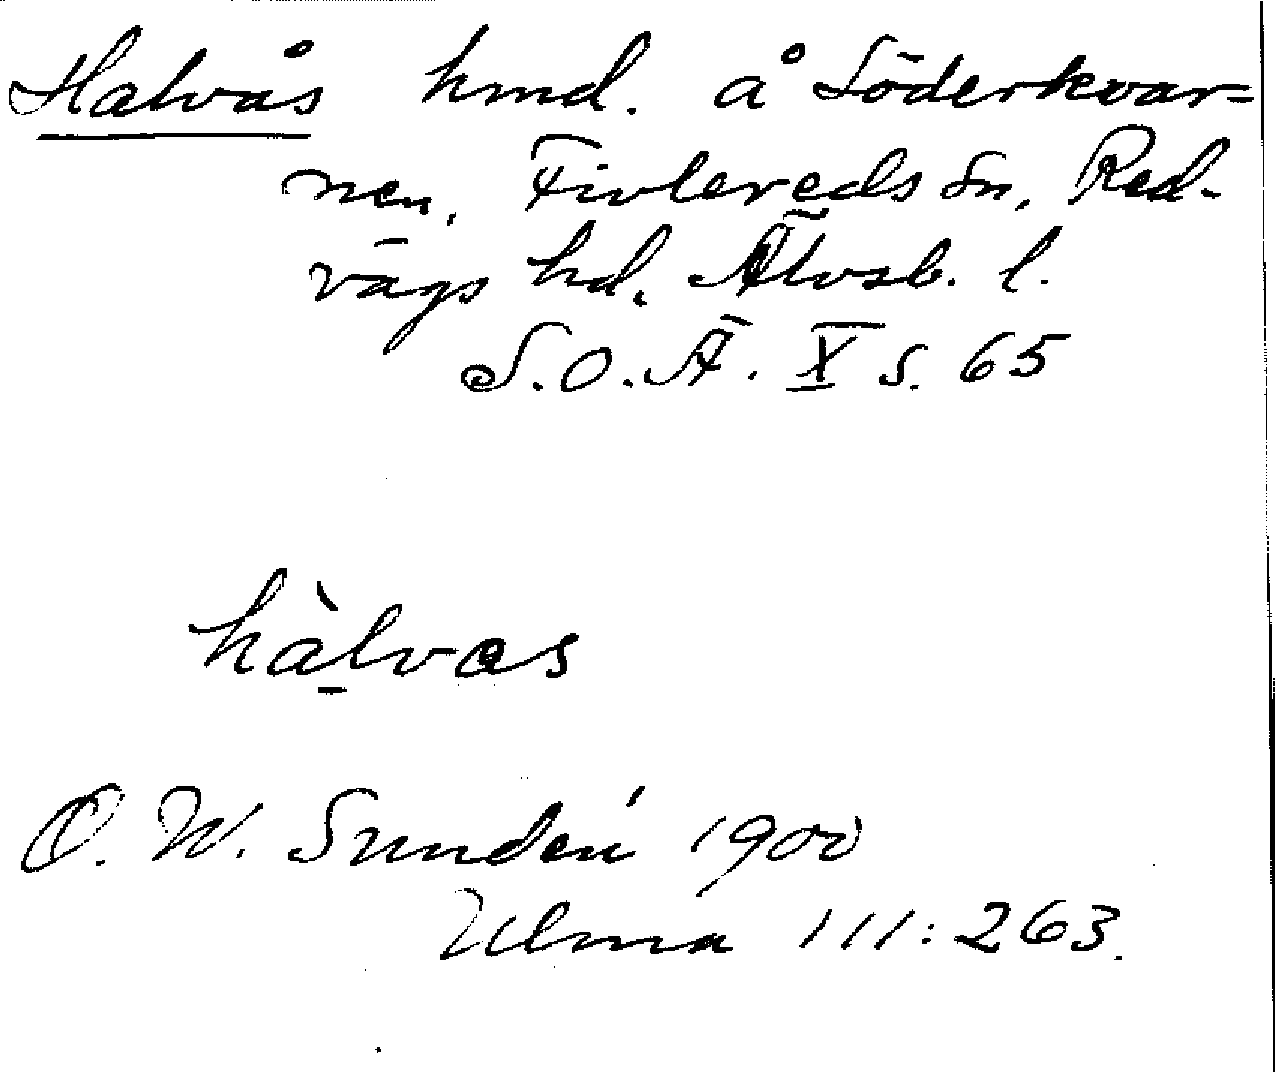 Halvås kmd. å Söderkvar=
nen, Fivlereds Sn, Red-
vägs hd. Älvsb. l.
S.O.Ä. X s. 65
hàlvas
O. W. Sundén 1900
Ulma 111:263.